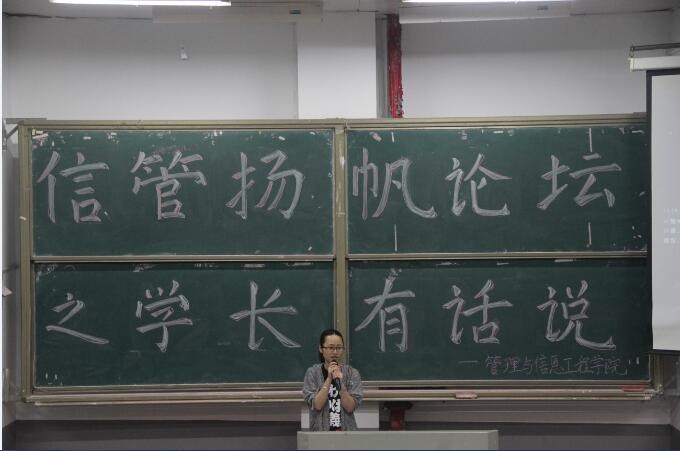 信管扬帆论坛
之学长有话说
一管理与信息工程学院